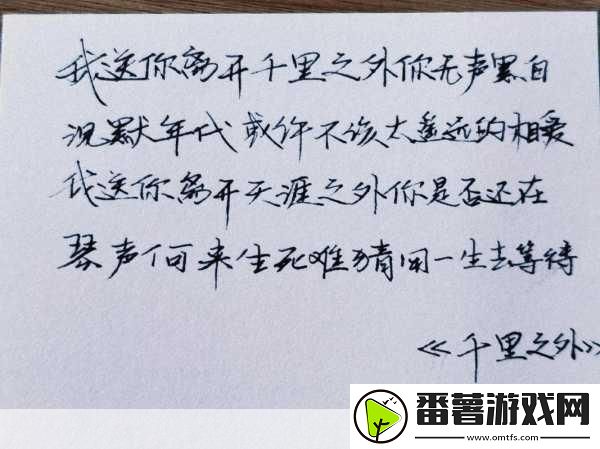 我送你离开千里之外你无声黑白
沉默年代或许不该太遥远的相爱
我送你离开天涯之外你是否还在
琴声何来生死难猜用一生去等待
《千里之外》
番薯游戏网
www.omtfs.com